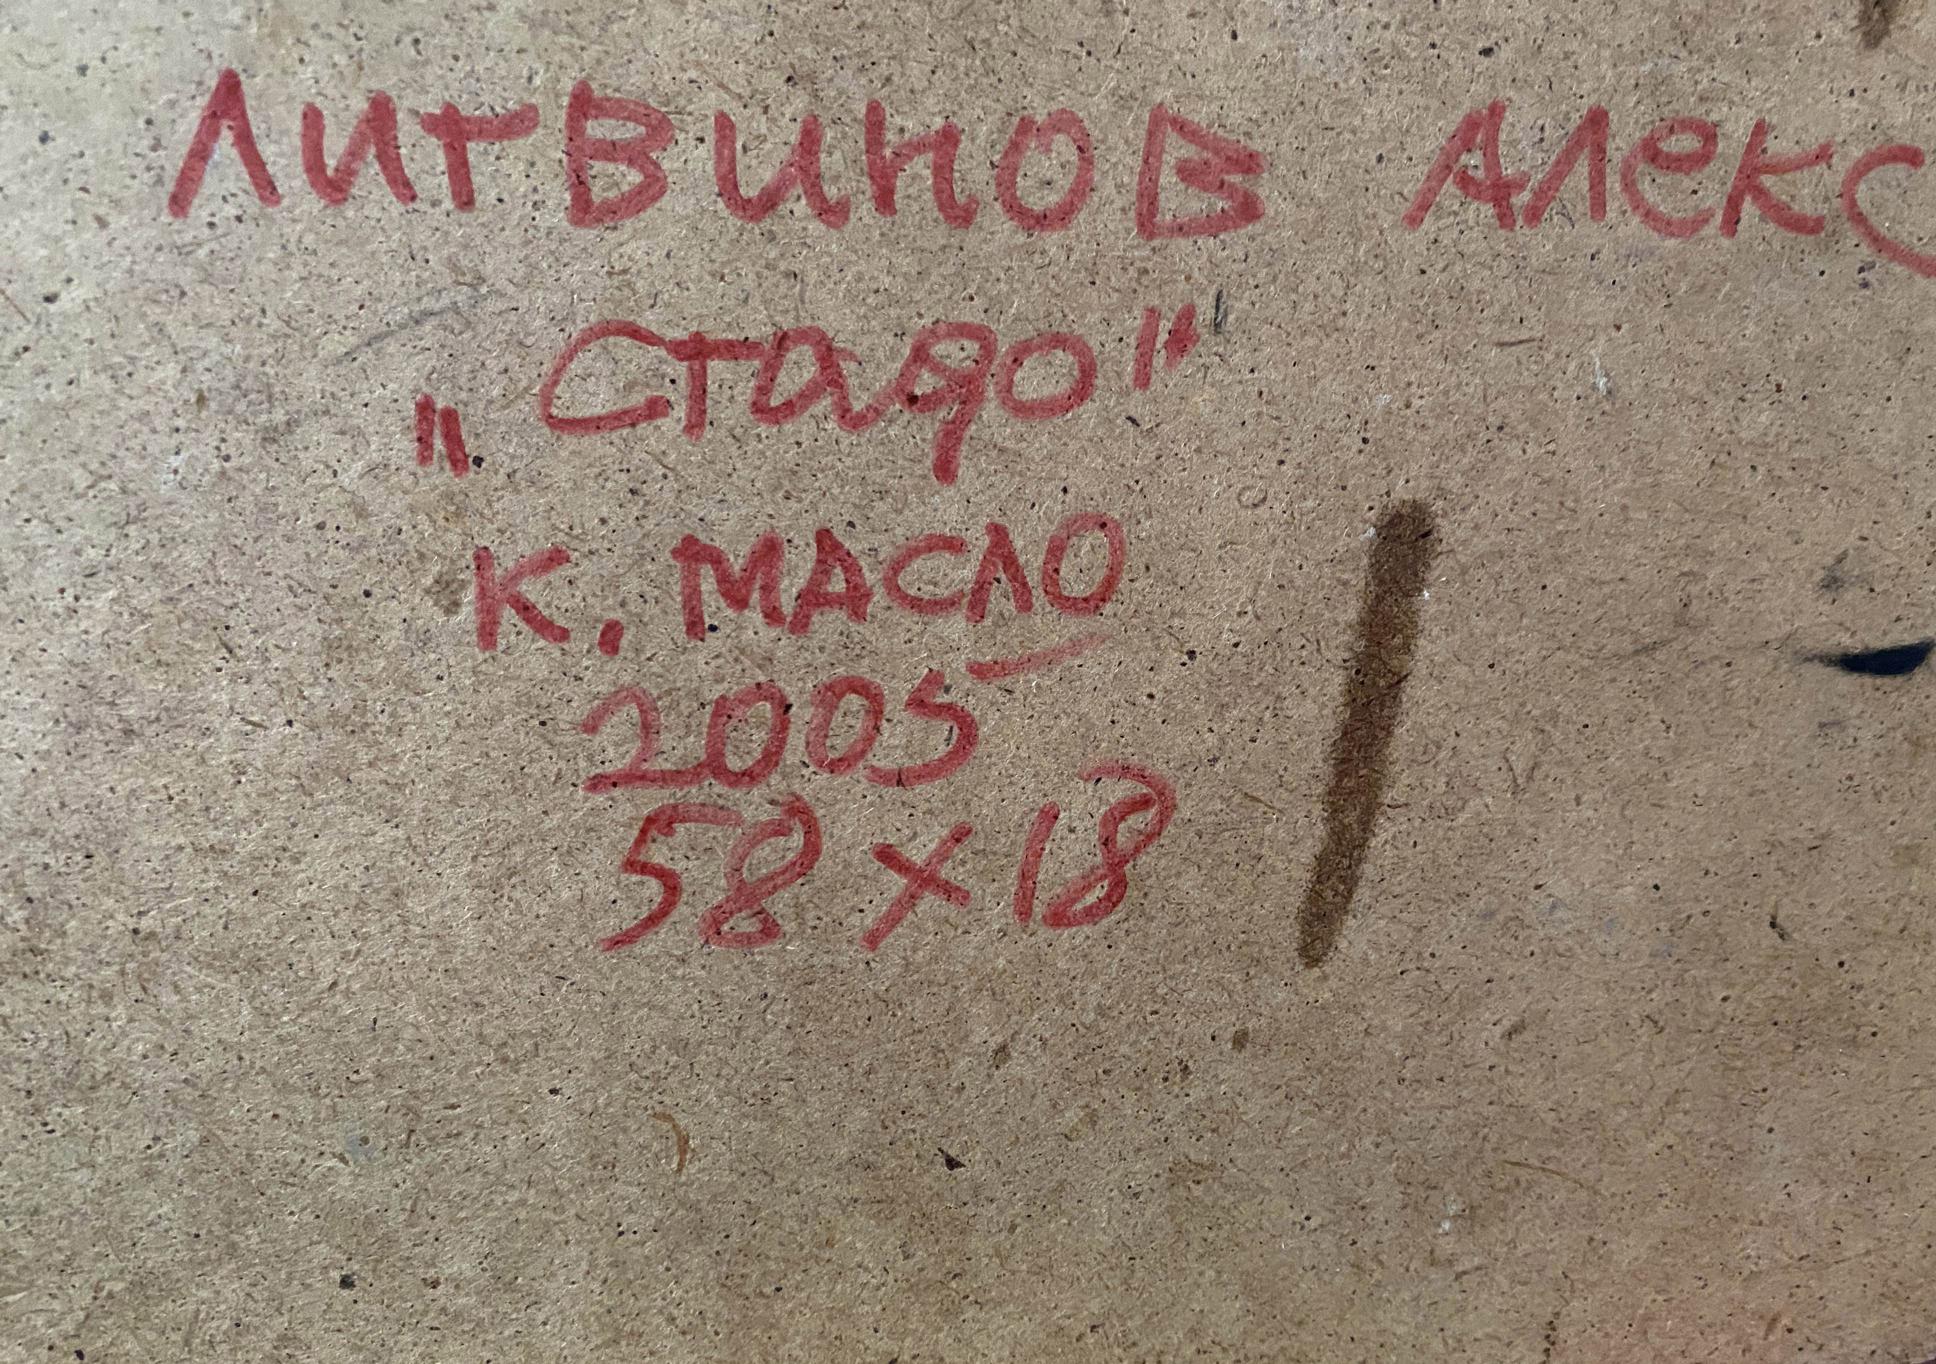 Литвинов Алекс
„Стадо"
К. МАСЛО
2005
58 x 18